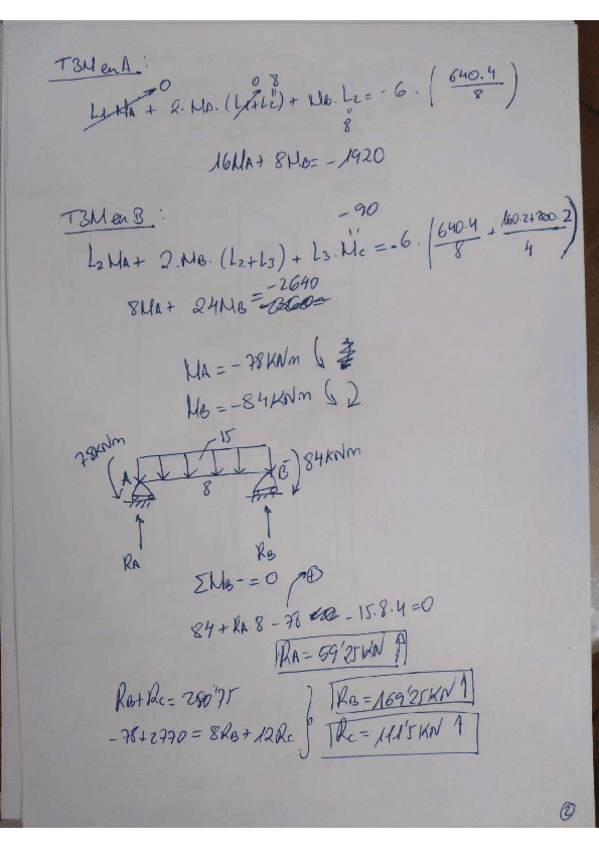 T3M en A:
L1 MA + 2·MA·(L1+L2) + MB·L2 = -6·(640·4/8)
0
0 8
8
16MA + 8MB = -1920
T3M en B:
-90
L2 MA + 2·MB·(L2+L3) + L3·MC = -6·(640·4/8 + 160·2+200·2/4)
8MA + 24MB = -2640
MA = -78 KNm
MB = -84 KNm
78KNm A 15 B- 84KNm
8
RA RB
ΣMB- = 0
84 + RA 8 - 78 - 15·8·4 = 0
RA = 59'25 KN ↑
RB + RC = 280'75 RB = 169'25 KN ↑
-78 + 2770 = 8RB + 12RC RC = 111'5 KN ↑
2